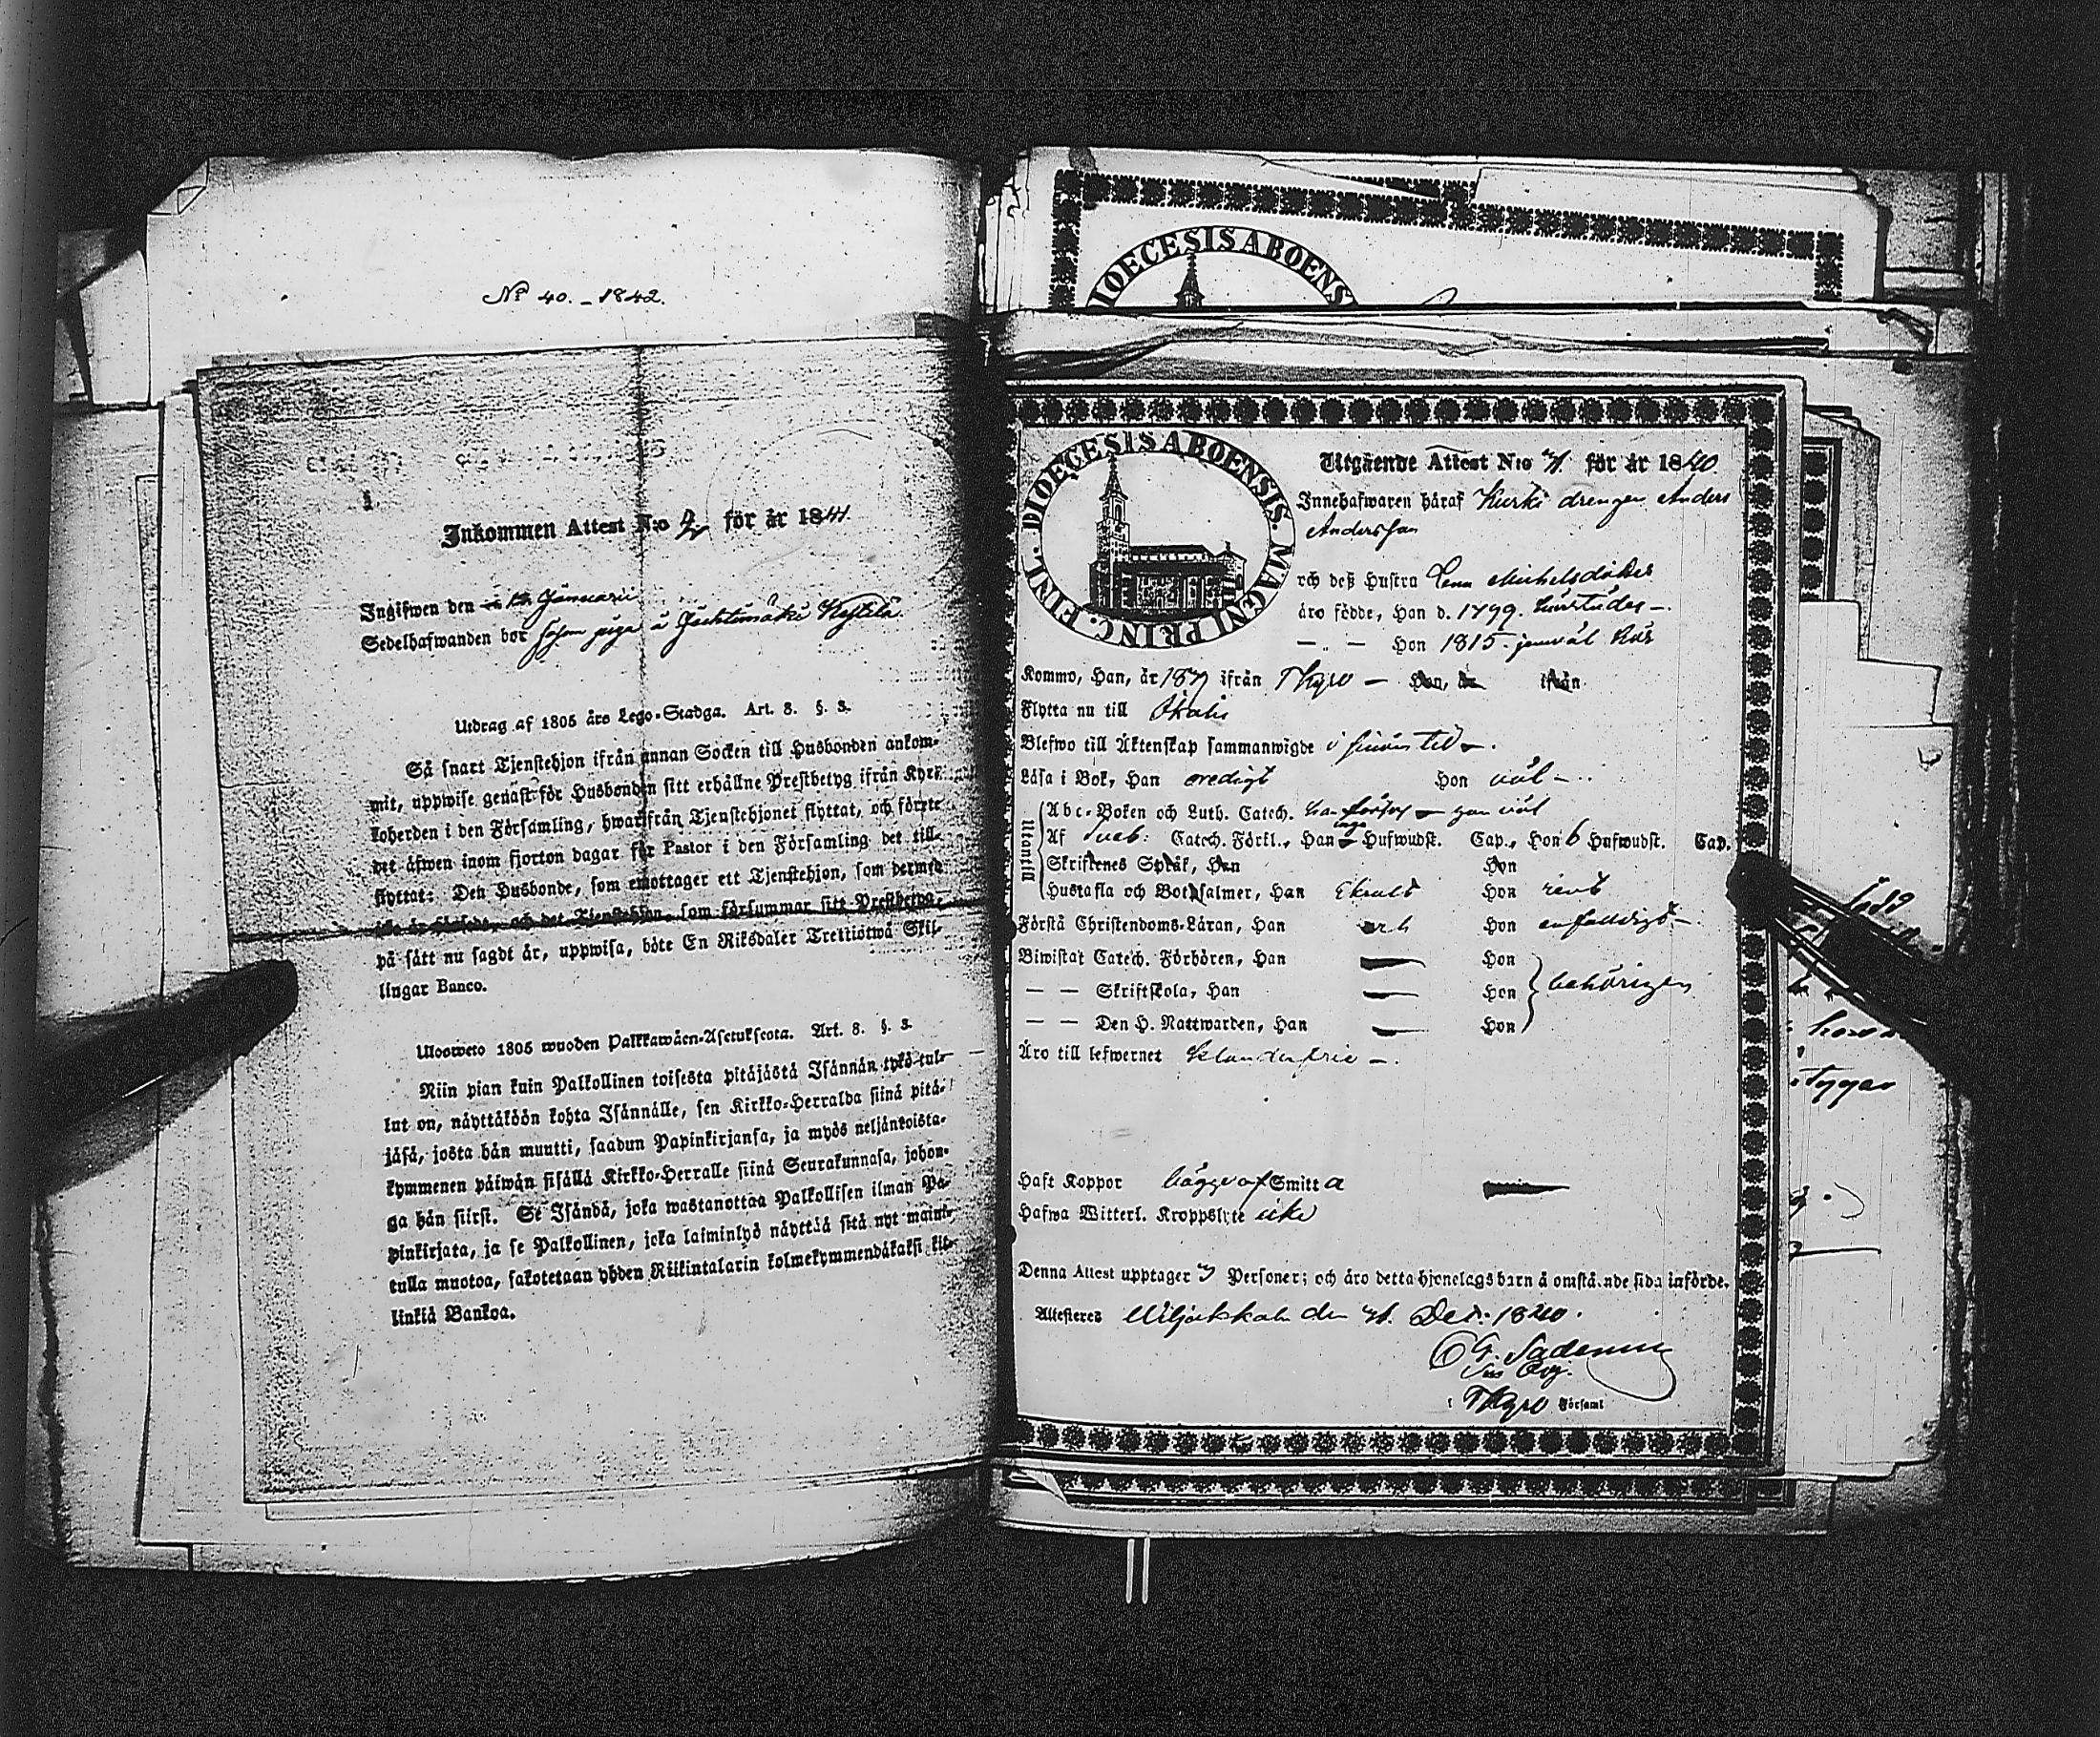 No 40. - 1842.
Inkommen Attest N:o 2 för år 1841
Ingifwen den Januarii
Sedelhafwanden bor såsom piga i Heittilä
Utdrag af 1805 års Lego-Stadga. Art. 8. §. 3.
Så snart Tjenstehjon ifrån annan Socken till Husbonden ankom-
mit, uppwise genast för Husbonden sitt erhållne Prestbetyg ifrån Kyr-
koherden i den Församling, hwarifrån Tjenstehjonet flyttat, och förete
det äfwen inom fjorton dagar för Pastor i den Församling det till-
flyttat: Den Husbonde, som emottager ett Tjenstehjon, som dermed
icke är försedt, och det Tjenstehjon, som försummar sitt Prestbetyg,
på sätt nu sagdt är, uppwisa, böte En Riksdaler Trettiotwå Skil-
lingar Banco.
Ulosweto 1805 wuoden Palkkawäen-Asetuksesta. Art. 8. §. 3.
Niin pian kuin Palkollinen toisesta pitäjästä Isännän tykö tul-
lut on, näyttäköön kohta Isännälle, sen Kirkko-Herralda siinä pitä-
jäsä, josta hän muutti, saadun Papinkirjansa, ja myös neljäntoista-
kymmenen päiwän sisällä Kirkko-Herralle siinä Seurakunnasa, johon-
ga hän siirsi. Se Isändä, joka wastanottaa Palkollisen ilman Pa-
pinkirjata, ja se Palkollinen, joka laiminlyö näyttää sitä nyt maini-
tulla muotoa, sakotetaan yhden Riikintalarin kolmekymmendäkaksi kil-
linkiä Bankoa.
DIOECESIS ABOENS
DIOECESIS ABOENSIS. MAGNI PRINC. FINL.
Utgående Attest N:o för år 1840
Innehafwaren häraf Kurki drengen Anders
Andersson
och deß Hustru Lena Michelsdotter
äro födde, Han d. 1799.
— „ — Hon 1815. jemväl
Kommo, Han, år 18 ifrån Tkyro — Hon, år ifrån
Flytta nu till Ikalis
Blefwo till Äktenskap sammanwigde i sinom tid —.
Läsa i Bok, Han oredigt Hon väl —
Utantill
Abc-Boken och Luth. Catech. han försvarl. — hon väl
Af Sveb: Catech. Förkl., Han inga Hufwudst. Cap., Hon 6 Hufwudst. Cap.
Skriftenes Språk, Han Hon
Hustafla och Botpsalmer, Han Hon rent
Förstå Christendoms-Läran, Han Hon enfaldigt —
Biwistat Catech. Förhören, Han — Hon
— — Skriftskola, Han — Hon behörigen
— — Den H. Nattwarden, Han — Hon
Äro till lefwernet klanderfrie —.
Haft Koppor bägge af Smitta
Hafwa Witterl. Kroppslyte icke
Denna Attest upptager Personer; och äro detta hjonelags barn å omstående sida införde.
Attesteres Wiljakkala den Dec: 1840.
G. Sadenius
i Tkyro Församl